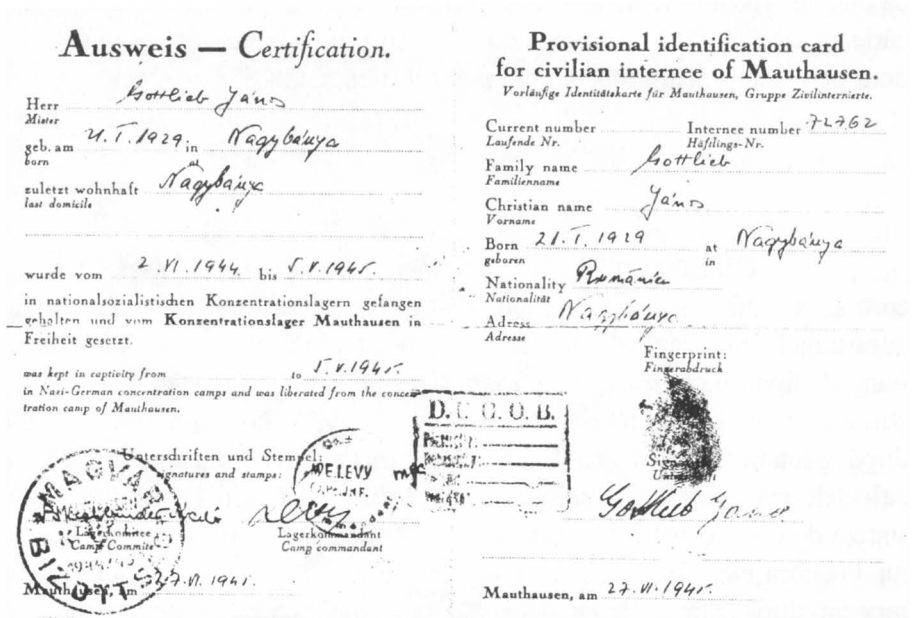 Ausweis — Certification.
Herr Gottlieb János
Mister
geb. am 21. I. 1929 in Nagybánya
born
zuletzt wohnhaft Nagybánya
last domicile
wurde vom 2 VI. 1944 bis 5. V. 1945.
in nationalsozialistischen Konzentrationslagern gefangen
gehalten und vom Konzentrationslager Mauthausen in
Freiheit gesetzt.
was kept in captivity from to 5. V. 1945.
in Nazi-German concentration camps and was liberated from the concen-
tration camp of Mauthausen.
Unterschriften und Stempel:
signatures and stamps:
MAGYAR
BIZOTTS
1944/45
LEVY
Lagerkomitee
Camp Commitee
Lagerkommandant
Camp commandant
Mauthausen, am 27. VI. 1945.
Provisional identification card
for civilian internee of Mauthausen.
Vorläufige Identitätskarte für Mauthausen, Gruppe Zivilinternierte.
Current number Internee number 72762
Laufende Nr. Häftlings-Nr.
Family name Gottlieb
Familienname
Christian name János
Vorname
Born 21. I. 1929 at Nagybánya
geboren in
Nationality Románia
Nationalität
Adress Nagybánya
Adresse
Fingerprint:
Fingerabdruck
D. G. O. O. B.
Gottlieb János
Mauthausen, am 27. VI. 1945.